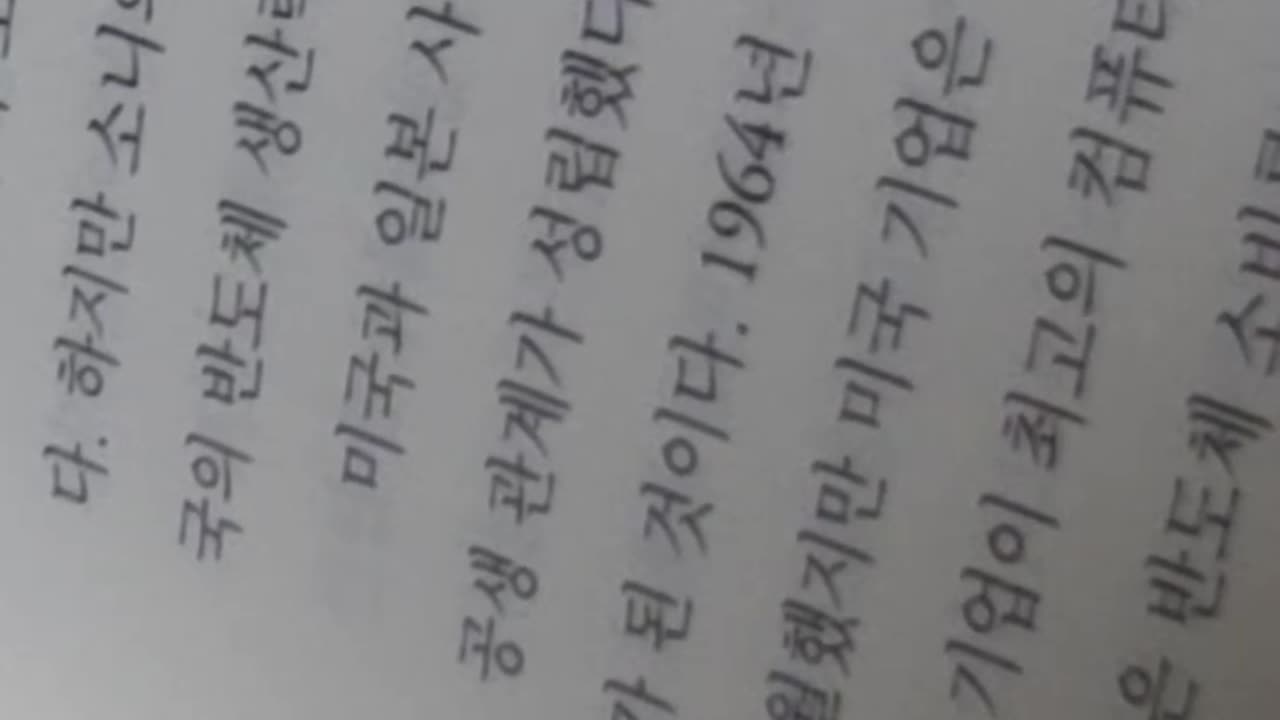 다. 하지만 소니
국의 반도체 생산
미국과 일본 사
공생 관계가 성립했다
가 된 것이다. 1964년
월했지만 미국 기업은
기업이 최고의 컴퓨터
은 반도체 소비